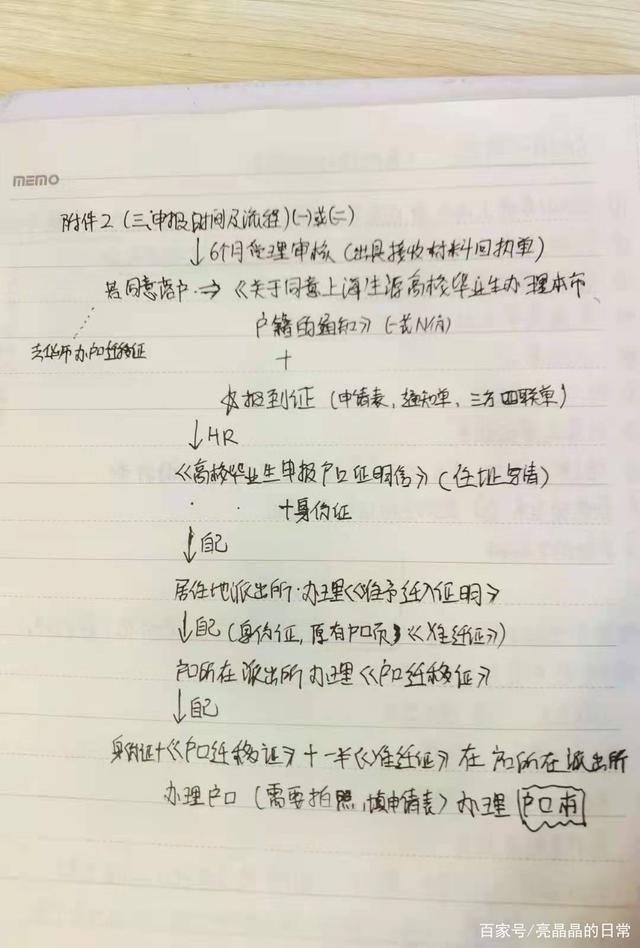 memo
附件2 (三、申报时间及流程)(一)或(二)
↓6个月受理审核 (出具接收材料回执单)
若同意落户 ⇒ 《关于同意上海生源高校毕业生办理本市
户籍的通知》(一式N份)
办户口迁移证
+
报到证 (申请表、通知单、三方四联单)
↓HR
《高校毕业生申报户口证明信》(住址写清)
+身份证
↓自己
居住地派出所·办理《准予迁入证明》
↓自己 (身份证, 原有户口页, 《准迁证》)
户口所在派出所办理《户口迁移证》
↓自己
身份证+《户口迁移证》+一半《准迁证》在户口所在派出所
办理户口 (需要拍照,填申请表) 办理 户口本
百家号/亮晶晶的日常